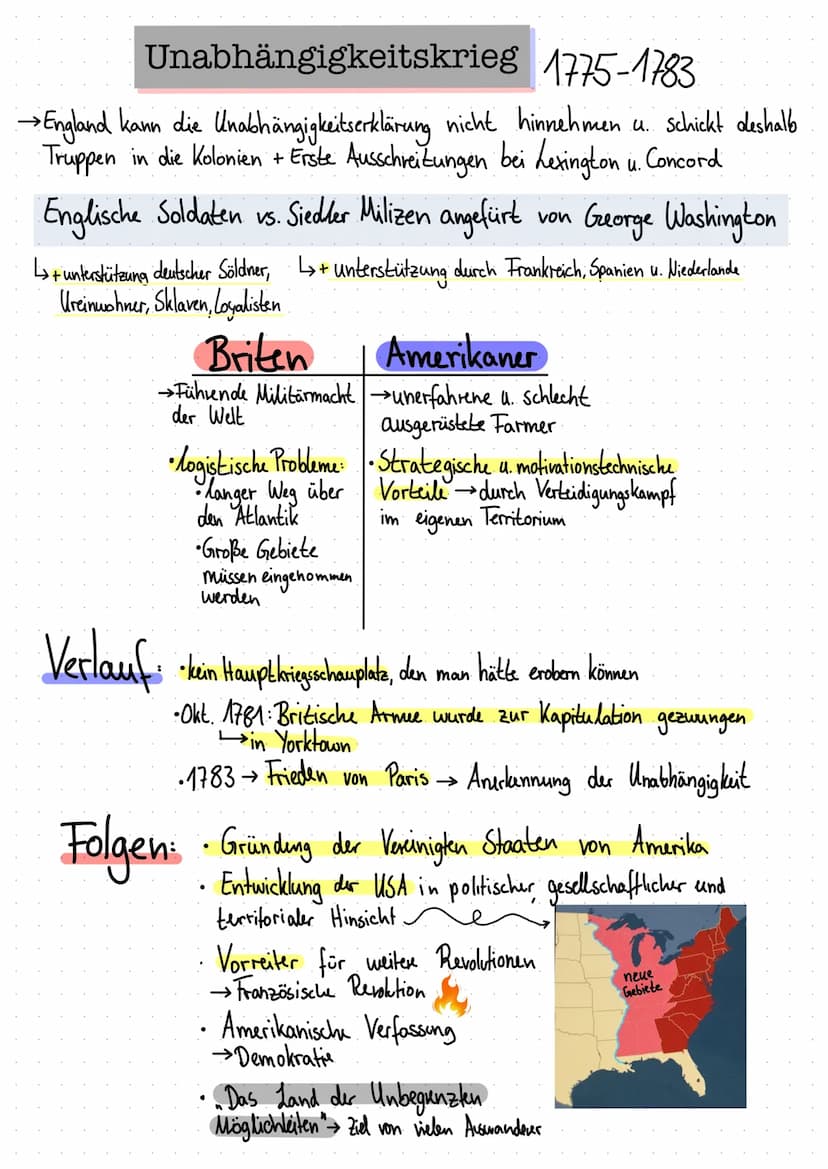 Unabhängigkeitskrieg 1775-1783
→England kann die Unabhängigkeitserklärung nicht hinnehmen u. schickt deshalb
Truppen in die Kolonien + Erste Ausschreitungen bei Lexington u. Concord
Englische Soldaten vs. Siedler Milizen angefürt von George Washington
↳+unterstützung deutscher Söldner,
Ureinwohner, Sklaven, Loyalisten
↳+ unterstützung durch Frankreich, Spanien u. Niederlande
Briten
→Führende Militärmacht
der Welt
•logistische Probleme:
•langer Weg über
den Atlantik
•Große Gebiete
müssen eingenommen
werden
Amerikaner
→unerfahrene u. schlecht
ausgerüstete Farmer
•Strategische u. motivationstechnische
Vorteile →durch Verteidigungskampf
im eigenen Territorium
Verlauf: •kein Hauptkriegsschauplatz, den man hätte erobern können
•Okt. 1781: Britische Armee wurde zur Kapitulation gezwungen
↳in Yorktown
•1783 → Frieden von Paris → Anerkannung der Unabhängigkeit
Folgen: • Gründung der Vereinigten Staaten von Amerika
• Entwicklung der USA in politischer, gesellschaftlicher und
territorialer Hinsicht
• Vorreiter für weitere Revolutionen
→ Französische Revolution 🔥
• Amerikanische Verfassung
→Demokratie
• „Das Land der Unbegrenzten
Möglichkeiten"→ Ziel von vielen Auswanderer
neue
Gebiete